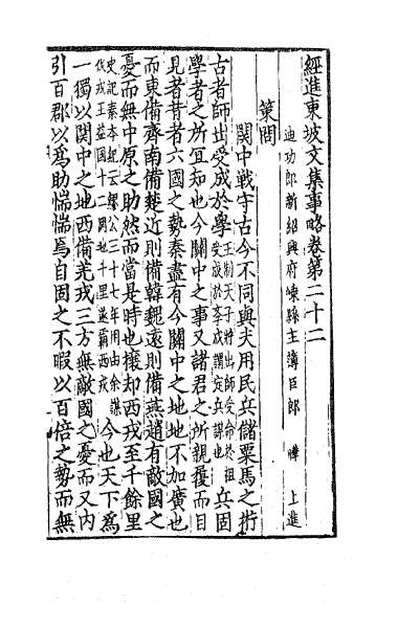 經進東坡文集事略卷第二十二
迪功郎新紹興府嵊縣主簿臣郎 曄 上進
策問
關中戰守古今不同與夫用民兵儲粟馬之術
古者師出受成於學王制天子將出師受命於祖受成於學成謂定兵謀也兵固
學者之所宜知也今關中之事又諸君之所親覆而目
見者昔者六國之勢秦盡有今關中之地地不加廣也
而東備齊南備楚近則備韓魏遠則備燕趙有敵國之
憂而無中原之助然而當是時也攘却西戎至千餘里
史記秦本紀云繆公三十七年用由余謀伐戎王益國十二開地千里遂霸西戎今也天下為
一獨以関中之地西備羌戎三方無敵國之憂而又内
引百郡以為助惴惴焉自固之不暇以百倍之勢而無